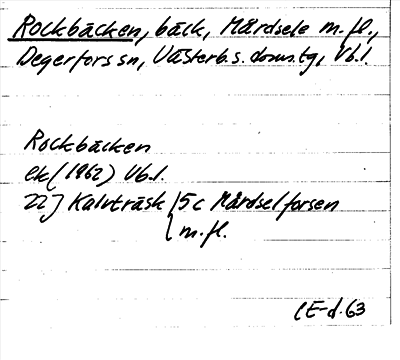 Rockbäcken, bäck, Mårdsele m.fl.,
Degerfors sn, Västerb.s. doms.tg, Vb.l.
Rockbäcken
ek (1962) Vb.l.
22J Kalvträsk 5c Mårdselforsen
m.fl.
CE-d. 63